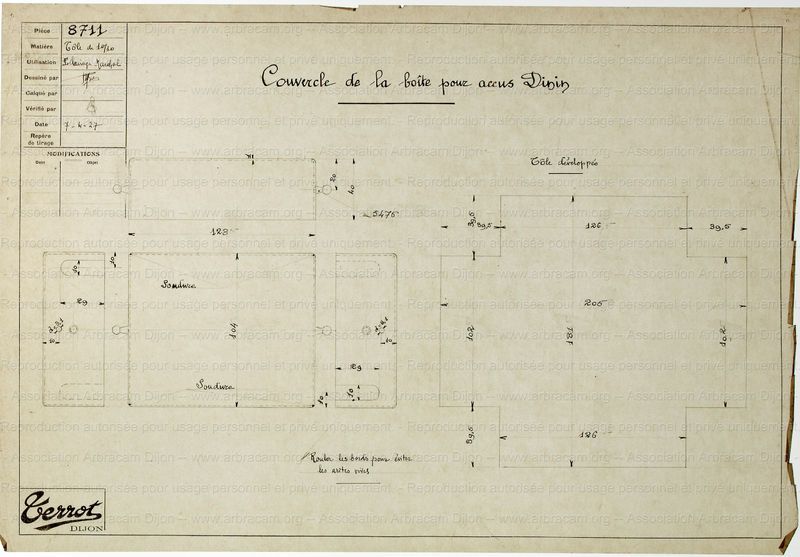 Pièce 8711
Matière Tôle de 10/10
Utilisation
Dessiné par
Calqué par
Vérifié par
Date 7-4-27
Repère de tirage
MODIFICATIONS
Date Objet
Couvercle de la boîte pour accus Dinin
Tôle développée
20
40
5475
128
39,5
39,5
126
39,5
10
10
Soudure
29
104
205
102
181
102
8
10
29
Soudure
10
10
39,5
126
Rouler les bords pour éviter
les arêtes vives
Terrot
DIJON
Reproduction autorisée pour usage personnel et privé uniquement – Association Arbracam Dijon – www.arbracam.org